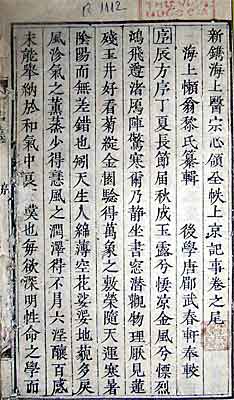 R 1112
新鐫海上醫宗心領全帙上京記事卷之尾
海上懶翁黎氏纂輯 後學唐郿武春軒奉較
序辰方序丁夏長節届秋成玉露兮悽凉金風兮慓烈
鴻飛遵渚鴈陣驚寒爾乃静坐書窓潛觀物理厭見蓮
殘玉井好看菊綻金園騐得萬象之敷榮隨天運寒暑
陰陽而無差錯也矧天生人綿薄空花娑婆地藐多戾
風沴氣之薰蒸少得惠風之潤澤得不月六淫釀百感
未能舉納於和氣中哀也每欲深明性命之學而